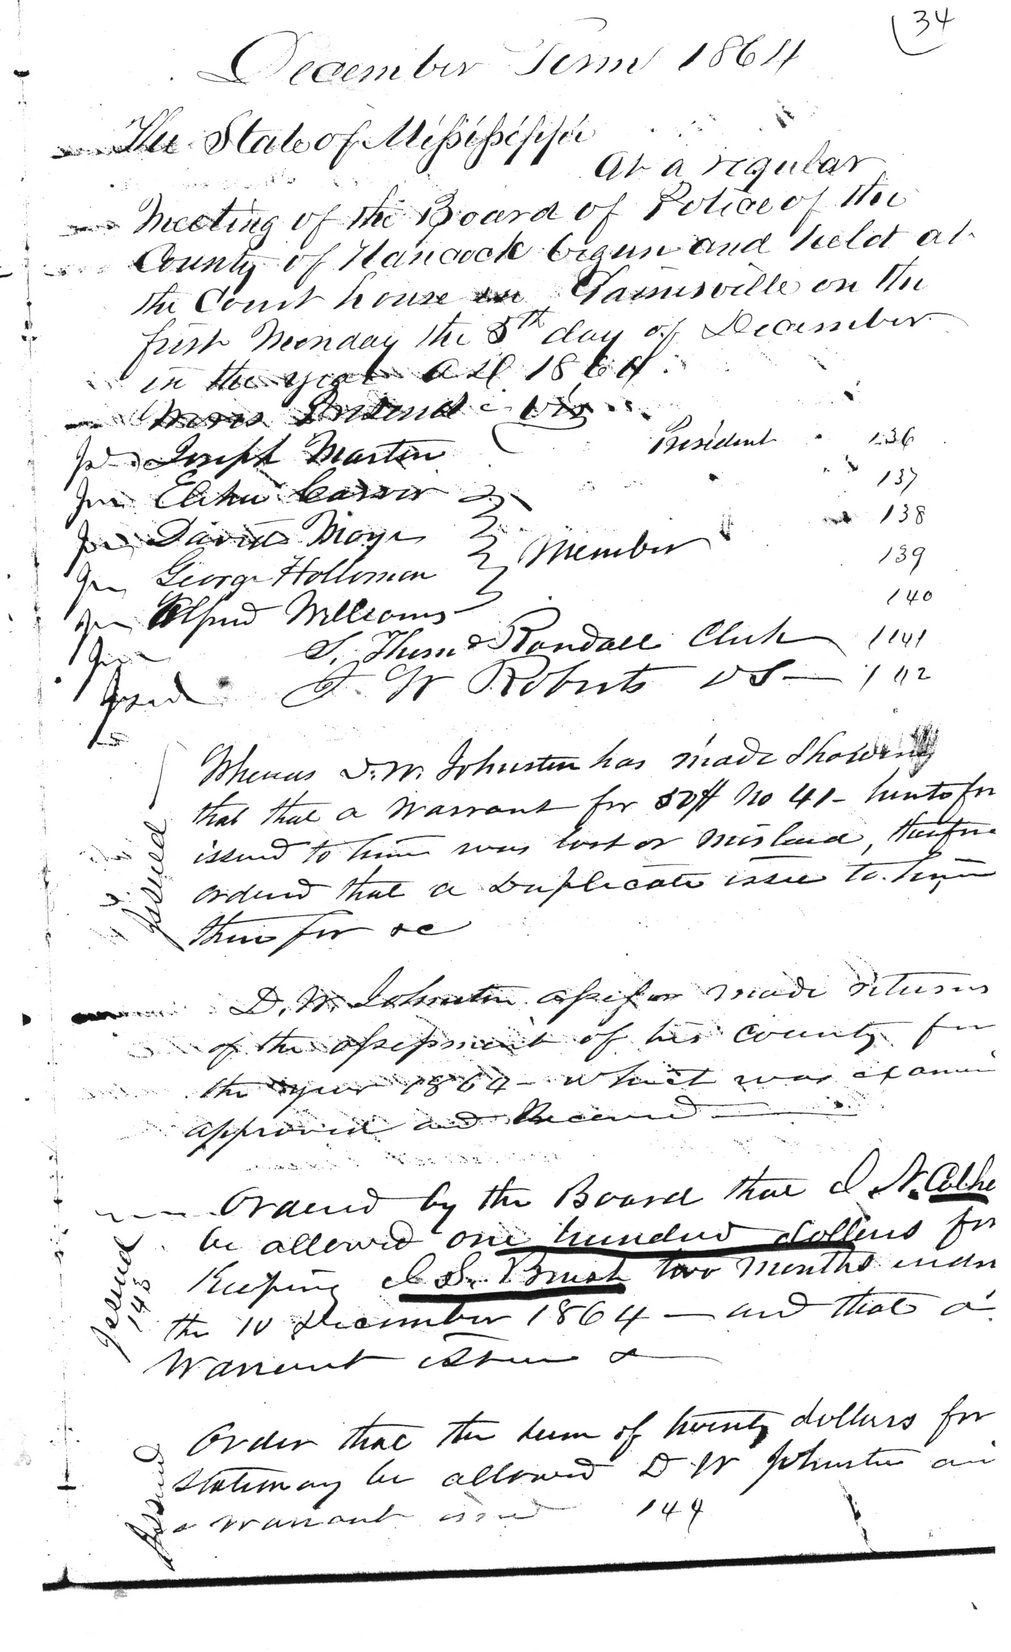 34
December Term 1864
The State of Mississippi
At a regular
Meeting of the Board of Police of the
County of Hancock begun and held at
the Court house in Gainesville on the
first Monday the 5th day of December
in the year AD 1864.
Present viz
Joseph Martin President 136
Elihu Carver 137
David Moye 138
George Holloman Member 139
Alfred Williams 140
S. Thom Randall Clerk 1141
J. W Roberts DS 142
Issued
Whereas D. W. Johnston has made Showing
that that a Warrant for 50$ No 41 - hertofor
issued to him was lost or mislaid, therefore
orderd that a Duplicate issue to him
therefor &c
D. W. Johnston assessor made returns
of the assessment of his county for
the year 1864 - which was examin
approved and Received
Issued 143
Ordered by the Board that
be allowed one hundred dollars for
Keeping I. S. Brush two Months
the 10 December 1864 - and that a
Warrant issue &
Issued
Order that the sum of twenty dollars for
stationary be allowed D W Johnston
a warrant issued 144